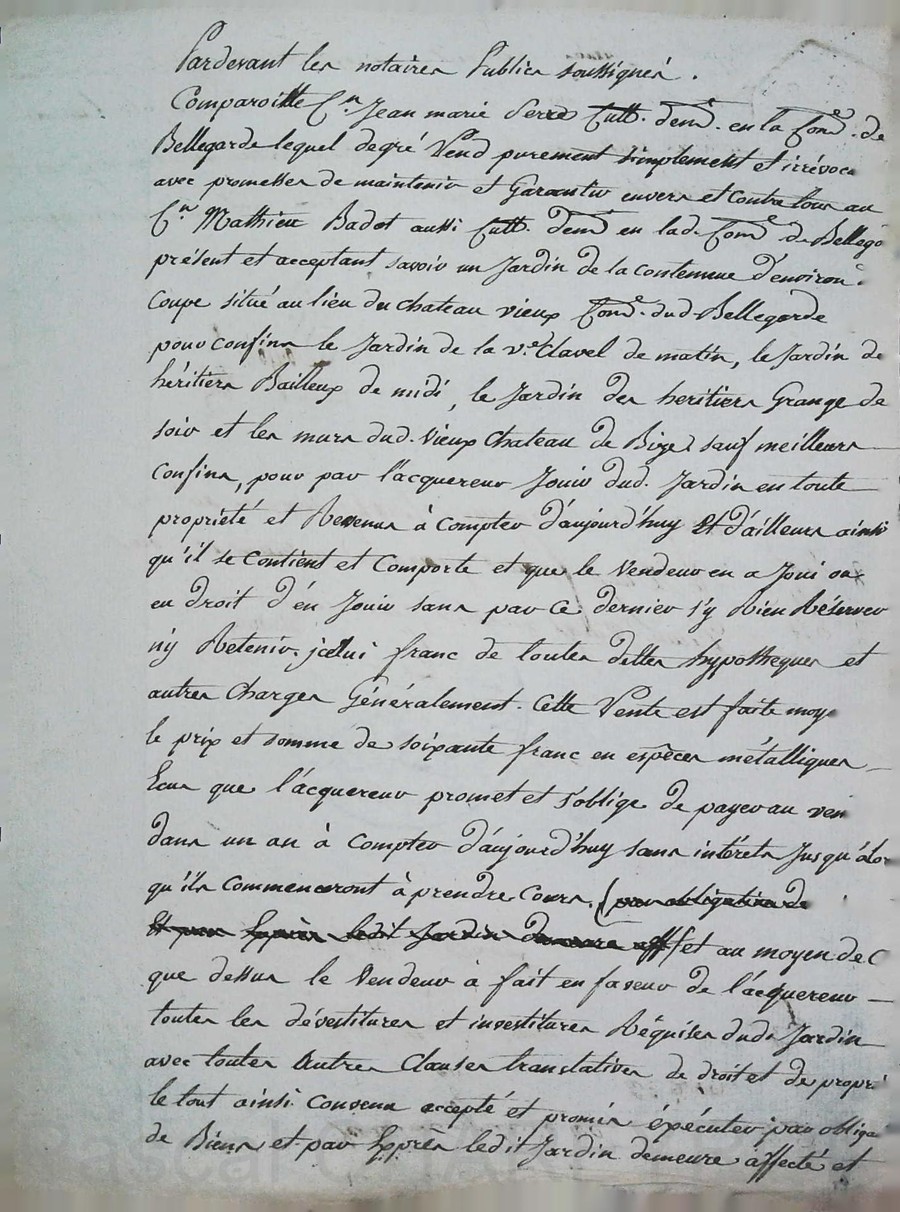 Pardevant les notaires Publics soussignés.
Comparoitte Cen Jean marie Serre Cult. demt. en la Come. de
Bellegarde lequel de gré Vend purement simplement et irrévoca
avec promesses de maintenir et Garantir envers et contre tous au
Cen Mathieu Badot aussi Cult. demt en lad. Come de Bellega
présent et acceptant savoir un Jardin de la contenue d'environ
Coupe situé au lieu du chateau vieux Come. dud. Bellegarde
pour confins le Jardin de la ve. Clavel de matin, le Jardin de
héritiers Bailleux de midi, le Jardin des heritiers Grange de
soir et les murs dud. vieux chateau de Bize sauf meilleurs
Confins, pour par l'acquereur Jouir dud. Jardin en toute
propriété et Revenus à Compter d'aujourd'huy Et d'ailleurs ainsi
qu'il se Contient et Comporte et que le Vendeur en a Joui ou
eu droit d'en Jouir sans par ce dernier s'y Rien Réserver
n'y Retenir. jcelui franc de toutes dettes hypotheques et
autres Charges Généralement. Cette Vente est faite moye
le prix et somme de soixante franc en espèces métalliques
Ecus que l'acquereur promet et s'oblige de payer au ven
dans un an à Compter d'aujourd'huy sans intérêts Jusqu'alor
qu'ils Commenceront à prendre Cours. (par obligation de
Et par Exprès ledit Jardin demeure aff fet au moyen de C
que dessus le Vendeur à fait en faveur de l'acquereur
toutes les dévestitures et investitures Réquises dud. Jardin
avec toutes Autres Clauses translatives de droit et de propri
le tout ainsi Convenu accepté et promis éxécuter par obliga
de Biens et par Exprès ledit Jardin demeure affecté et